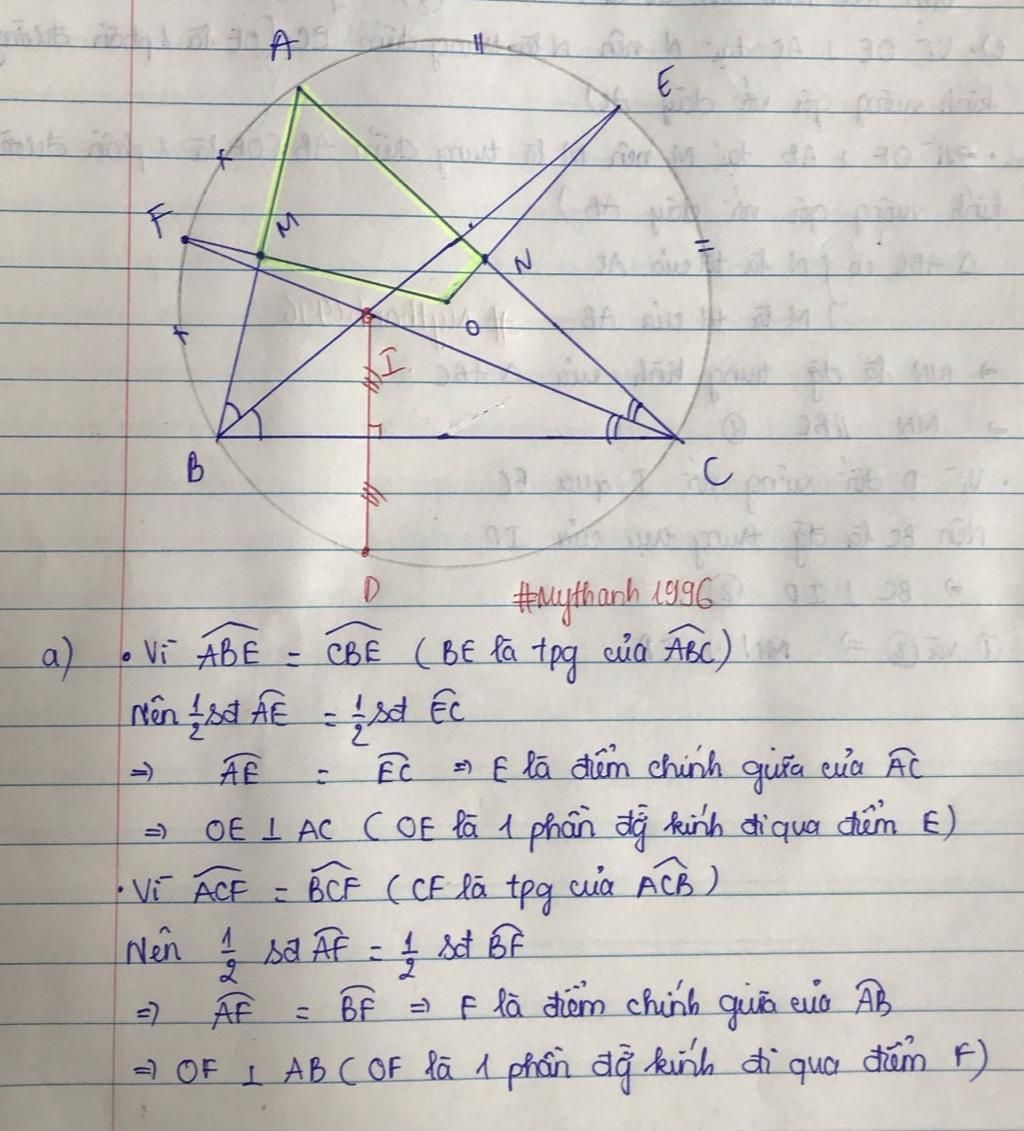 A
E
F
M
N
O
I
B
C
D
#Mythanh1996
a) • Vì ABE = CBE ( BE là tpg của ABC )
Nên 1/2 sđ AE = 1/2 sđ EC
=> AE = EC => E là điểm chính giữa của AC
=> OE ⊥ AC ( OE là 1 phần đg kính đi qua điểm E )
• Vì ACF = BCF ( CF là tpg của ACB )
Nên 1/2 sđ AF = 1/2 sđ BF
=> AF = BF => F là điểm chính giữa của AB
=> OF ⊥ AB ( OF là 1 phần đg kính đi qua điểm F )